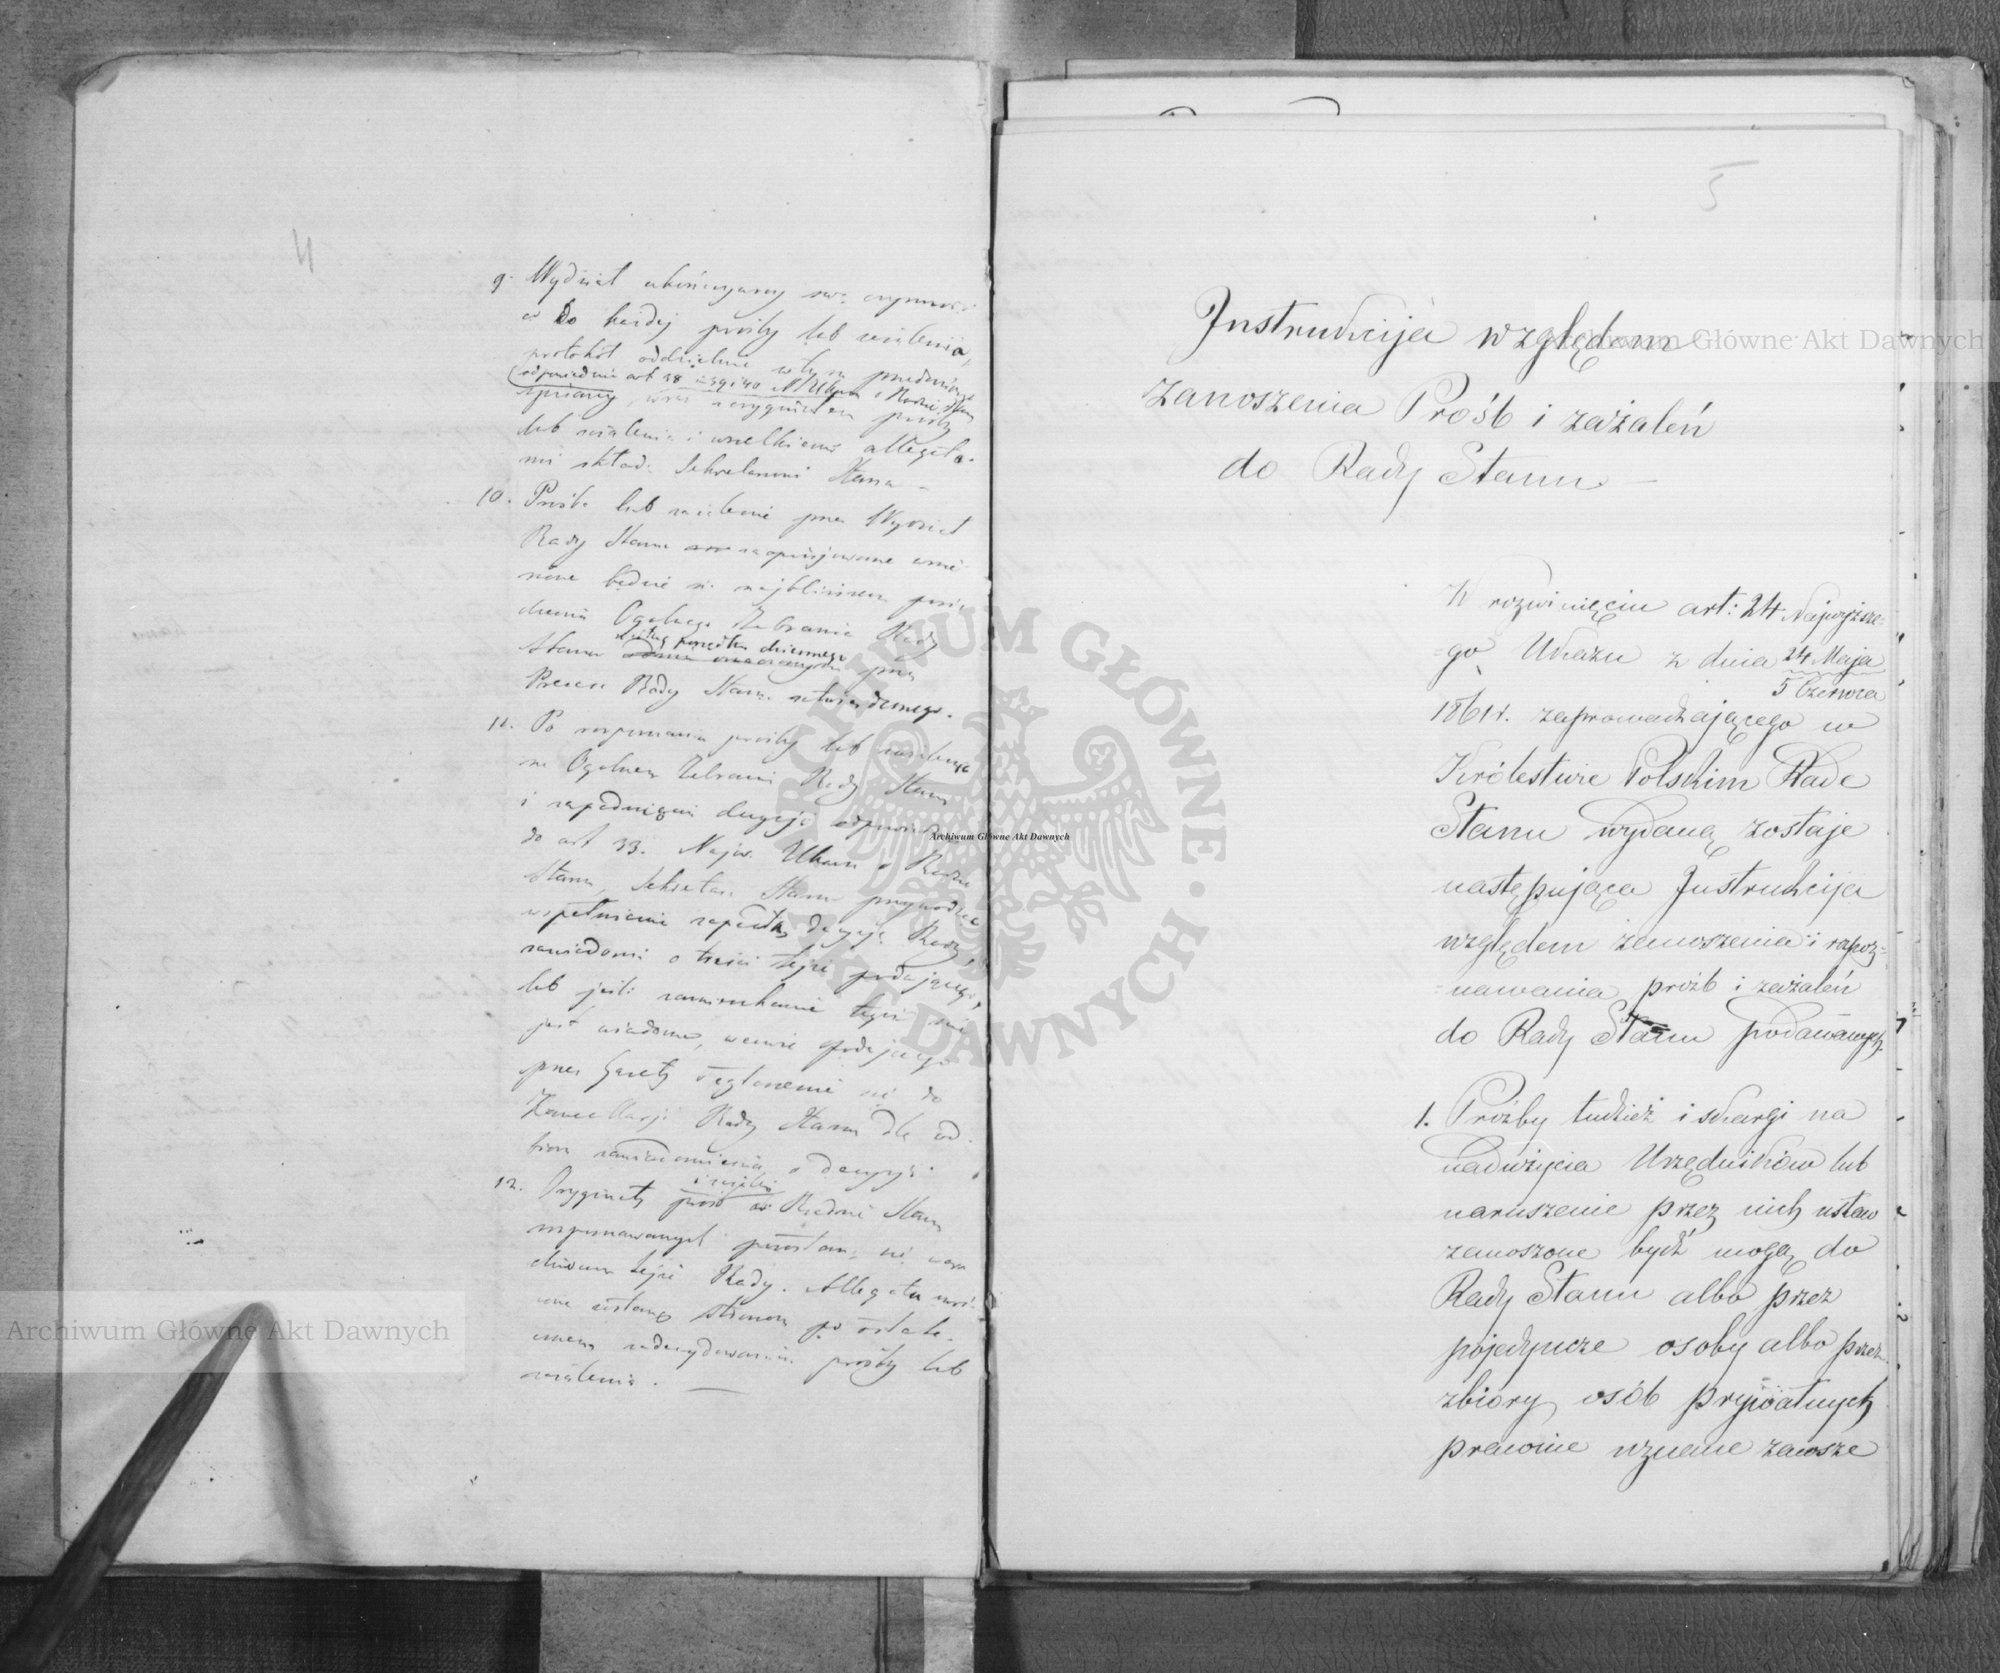 4
9. Wydział ukończywszy swe czynności
co do każdej prośby lub zażalenia,
protokół oddzielnie w tym przedmiocie
odpowiednio art 38 i 39 i 40 N. Ukazu o Radzie Stanu
sprawy, wraz z oryginałem prośby
lub zażalenia i wszelkiemi allegata-
mi składa Sekretarzowi Stanu –
10. Prośba lub zażalenie przez Wydział
Rady Stanu zaopiniowane wnie-
sione będzie na najbliższem posie-
dzeniu Ogólnego Zebrania Rady
Stanu według porządku dziennego przez
Prezesa Rady Stanu zatwierdzonego.
11. Po rozpoznaniu prośby lub zażalenia
na Ogólnem Zebraniu Rady Stanu
i zapadnięciu decyzji odpowiednio
do art 33. Najw. Ukazu o Radzie
Stanu, Sekretarz Stanu przywodząc
w spełnienie zapadłą decyzję Rady
zawiadomi o treści tejże podającego,
lub jeśli zamieszkanie tegoż nie
jest wiadome, wezwie podającego
przez Gazety o zgłoszenie się do
Kancellarji Rady Stanu dla od-
bioru zawiadomienia o decyzji.
12. Oryginały prośb i zażaleń w Radzie Stanu
rozpoznawanych pozostaną w ar-
chiwum tejże Rady. Allegata zwró-
cone zostaną stronom po ostate-
cznem zadecydowaniu prośby lub
zażalenia. —
5
Instrukcija względem
zanoszenia Prośb i zażaleń
do Rady Stanu –
W rozwinięciu art: 24 Najwyższe=
=go Ukazu z dnia 24 Maja
5 Czerwca
1861 r. zaprowadzającego w
Królestwie Polskim Radę
Stanu wydaną zostaje
następująca Instrukcija
względem zanoszenia i rozpoz=
=nawania próźb i zażaleń
do Rady Stanu podawanych.
1. Proźby tudzież i skargi na
nadużycia Urzędników lub
naruszenie przez nich ustaw
zanoszone bydź mogą do
Rady Stanu albo przez
pojedyncze osoby albo przez
zbiory osób prywatnych
prawnie uznane zawsze
Archiwum Główne Akt Dawnych
Archiwum Główne Akt Dawnych
Archiwum Główne Akt Dawnych
ARCHIWUM GŁÓWNE · AKT DAWNYCH ·